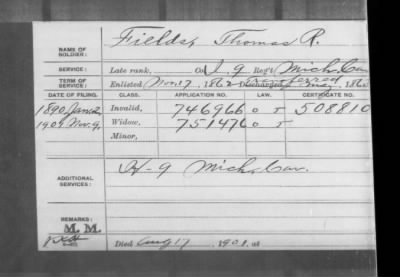 Fields, Thomas R.
NAME OF SOLDIER:
SERVICE: Late rank, Co I, 9 Reg't Mich. Cav
TERM OF SERVICE: Enlisted Nov. 17, 1862 Discharged transferred May, 186
DATE OF FILING. CLASS. APPLICATION NO. LAW. CERTIFICATE NO.
1890 Jan 2, Invalid, 746966 O I 508810
1901 Nov. 9, Widow, 751476 O I
Minor,
ADDITIONAL SERVICES: H-9 Mich. Cav.
REMARKS:
M. M.
Died Aug 17, 1901, at